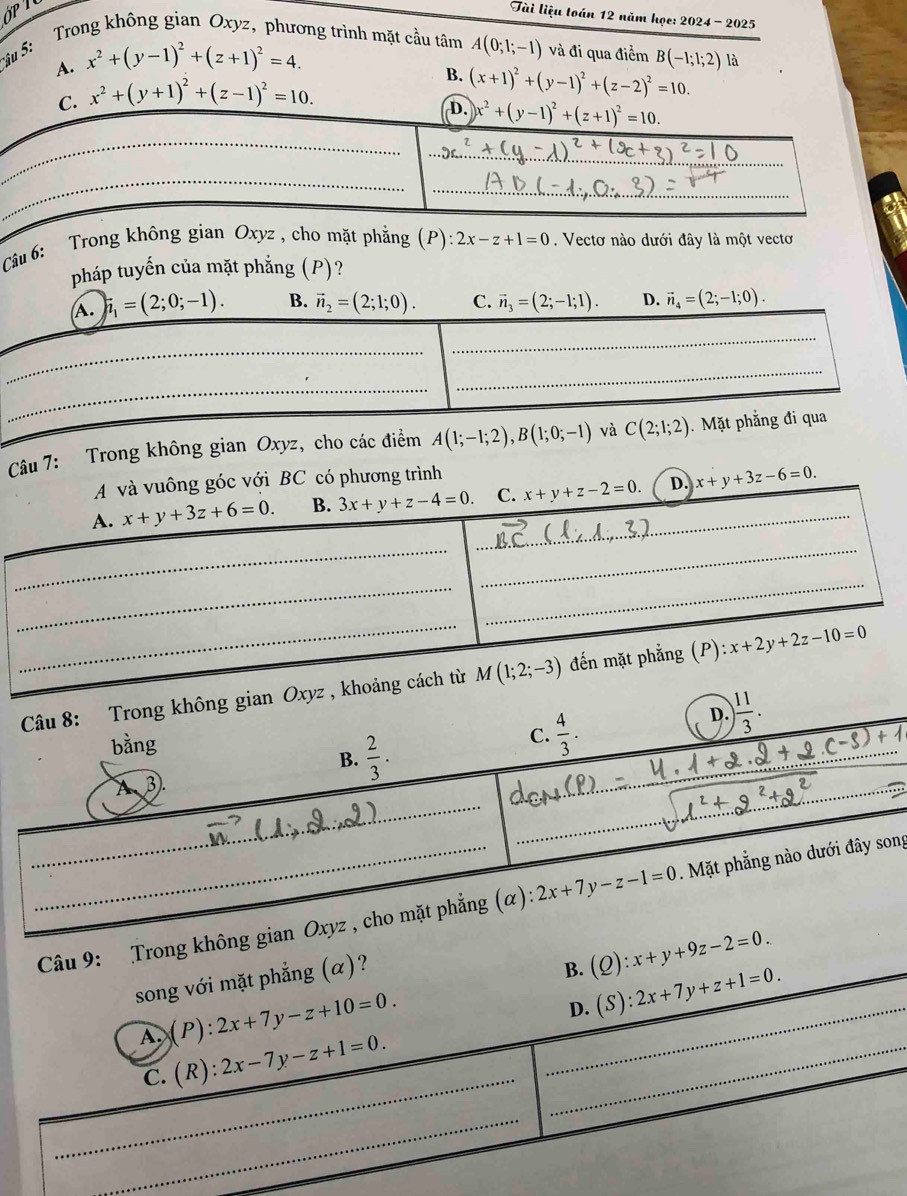 Tài liệu toán 12 năm học: 2024 - 2025
Câu 5: Trong không gian Oxyz, phương trình mặt cầu tâm A(0;1;-1) và đi qua điểm B(-1;1;2) là
A. x² + (y-1)² + (z+1)² = 4.
B. (x+1)² + (y-1)² + (z-2)² = 10.
C. x² + (y+1)² + (z-1)² = 10.
D. x² + (y-1)² + (z+1)² = 10.
Câu 6: Trong không gian Oxyz , cho mặt phẳng (P): 2x - z + 1 = 0 . Vectơ nào dưới đây là một vectơ
pháp tuyến của mặt phẳng (P)?
A. n⃗₁ = (2;0;-1). B. n⃗₂ = (2;1;0). C. n⃗₃ = (2;-1;1). D. n⃗₄ = (2;-1;0).
Câu 7: Trong không gian Oxyz, cho các điểm A(1;-1;2), B(1;0;-1) và C(2;1;2). Mặt phẳng đi qua
A và vuông góc với BC có phương trình
A. x + y + 3z + 6 = 0. B. 3x + y + z - 4 = 0. C. x + y + z - 2 = 0. D. x + y + 3z - 6 = 0.
BC⃗ (1; 1; 3)
Câu 8: Trong không gian Oxyz , khoảng cách từ M(1;2;-3) đến mặt phẳng (P): x + 2y + 2z - 10 = 0
bằng
A. 3. B. 2/3. C. 4/3. D. 11/3.
n⃗ (1; 2; 2)
Câu 9: Trong không gian Oxyz , cho mặt phẳng (α): 2x + 7y - z - 1 = 0. Mặt phẳng nào dưới đây song
song với mặt phẳng (α)?
A. (P): 2x + 7y - z + 10 = 0.
B. (Q): x + y + 9z - 2 = 0.
C. (R): 2x - 7y - z + 1 = 0.
D. (S): 2x + 7y + z + 1 = 0.